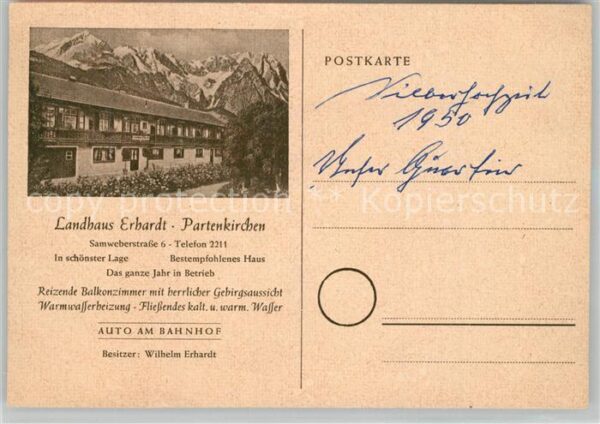 Landhaus Erhardt - Partenkirchen
Samweberstraße 6 - Telefon 2211
In schönster Lage Bestempfohlenes Haus
Das ganze Jahr in Betrieb
Reizende Balkonzimmer mit herrlicher Gebirgsaussicht
Warmwasserheizung - Fließendes kalt. u. warm. Wasser
AUTO AM BAHNHOF
Besitzer: Wilhelm Erhardt
POSTKARTE
Silberhochzeit
1950
Unser Quartier
copy protection * Kopierschutz